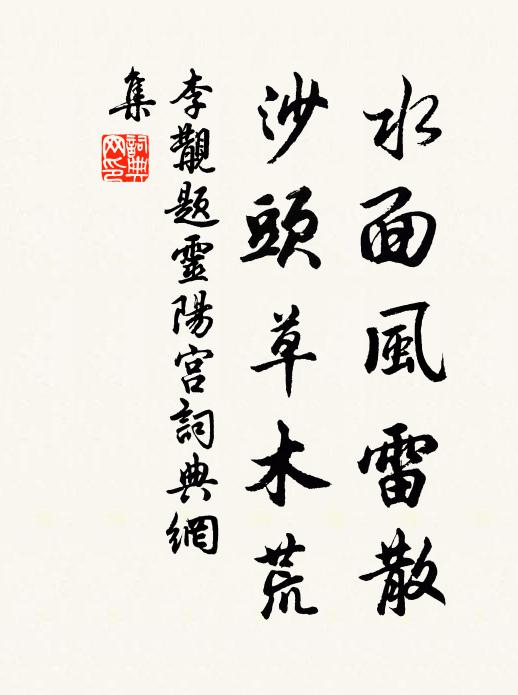 水面風雷散
沙頭草木荒
李觀題靈陽宮詞典網
集
詞典
网印